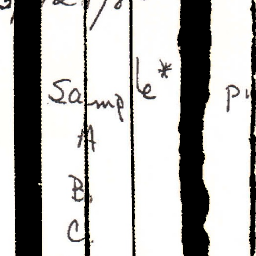 Sample*
A
B.
C.